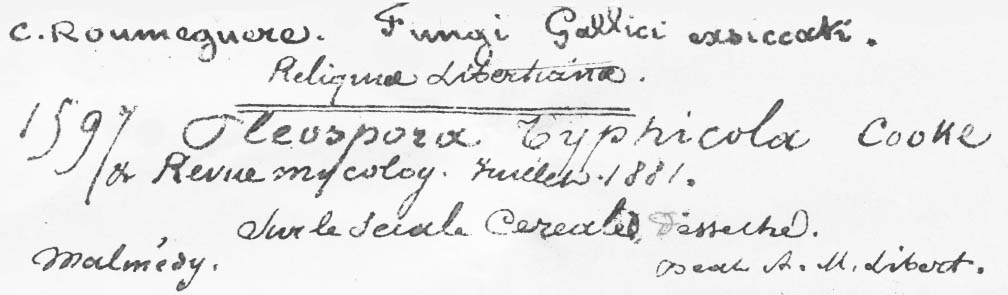 C. Roumeguere. Fungi Gallici exsiccati.
Reliquiæ Libertianæ.
1597 Pleospora Typhicola Cooke
Revue mycolog. Juillet. 1881.
Sur le Secale Cereale, Desseché.
Malmédy. A. M. Libert.